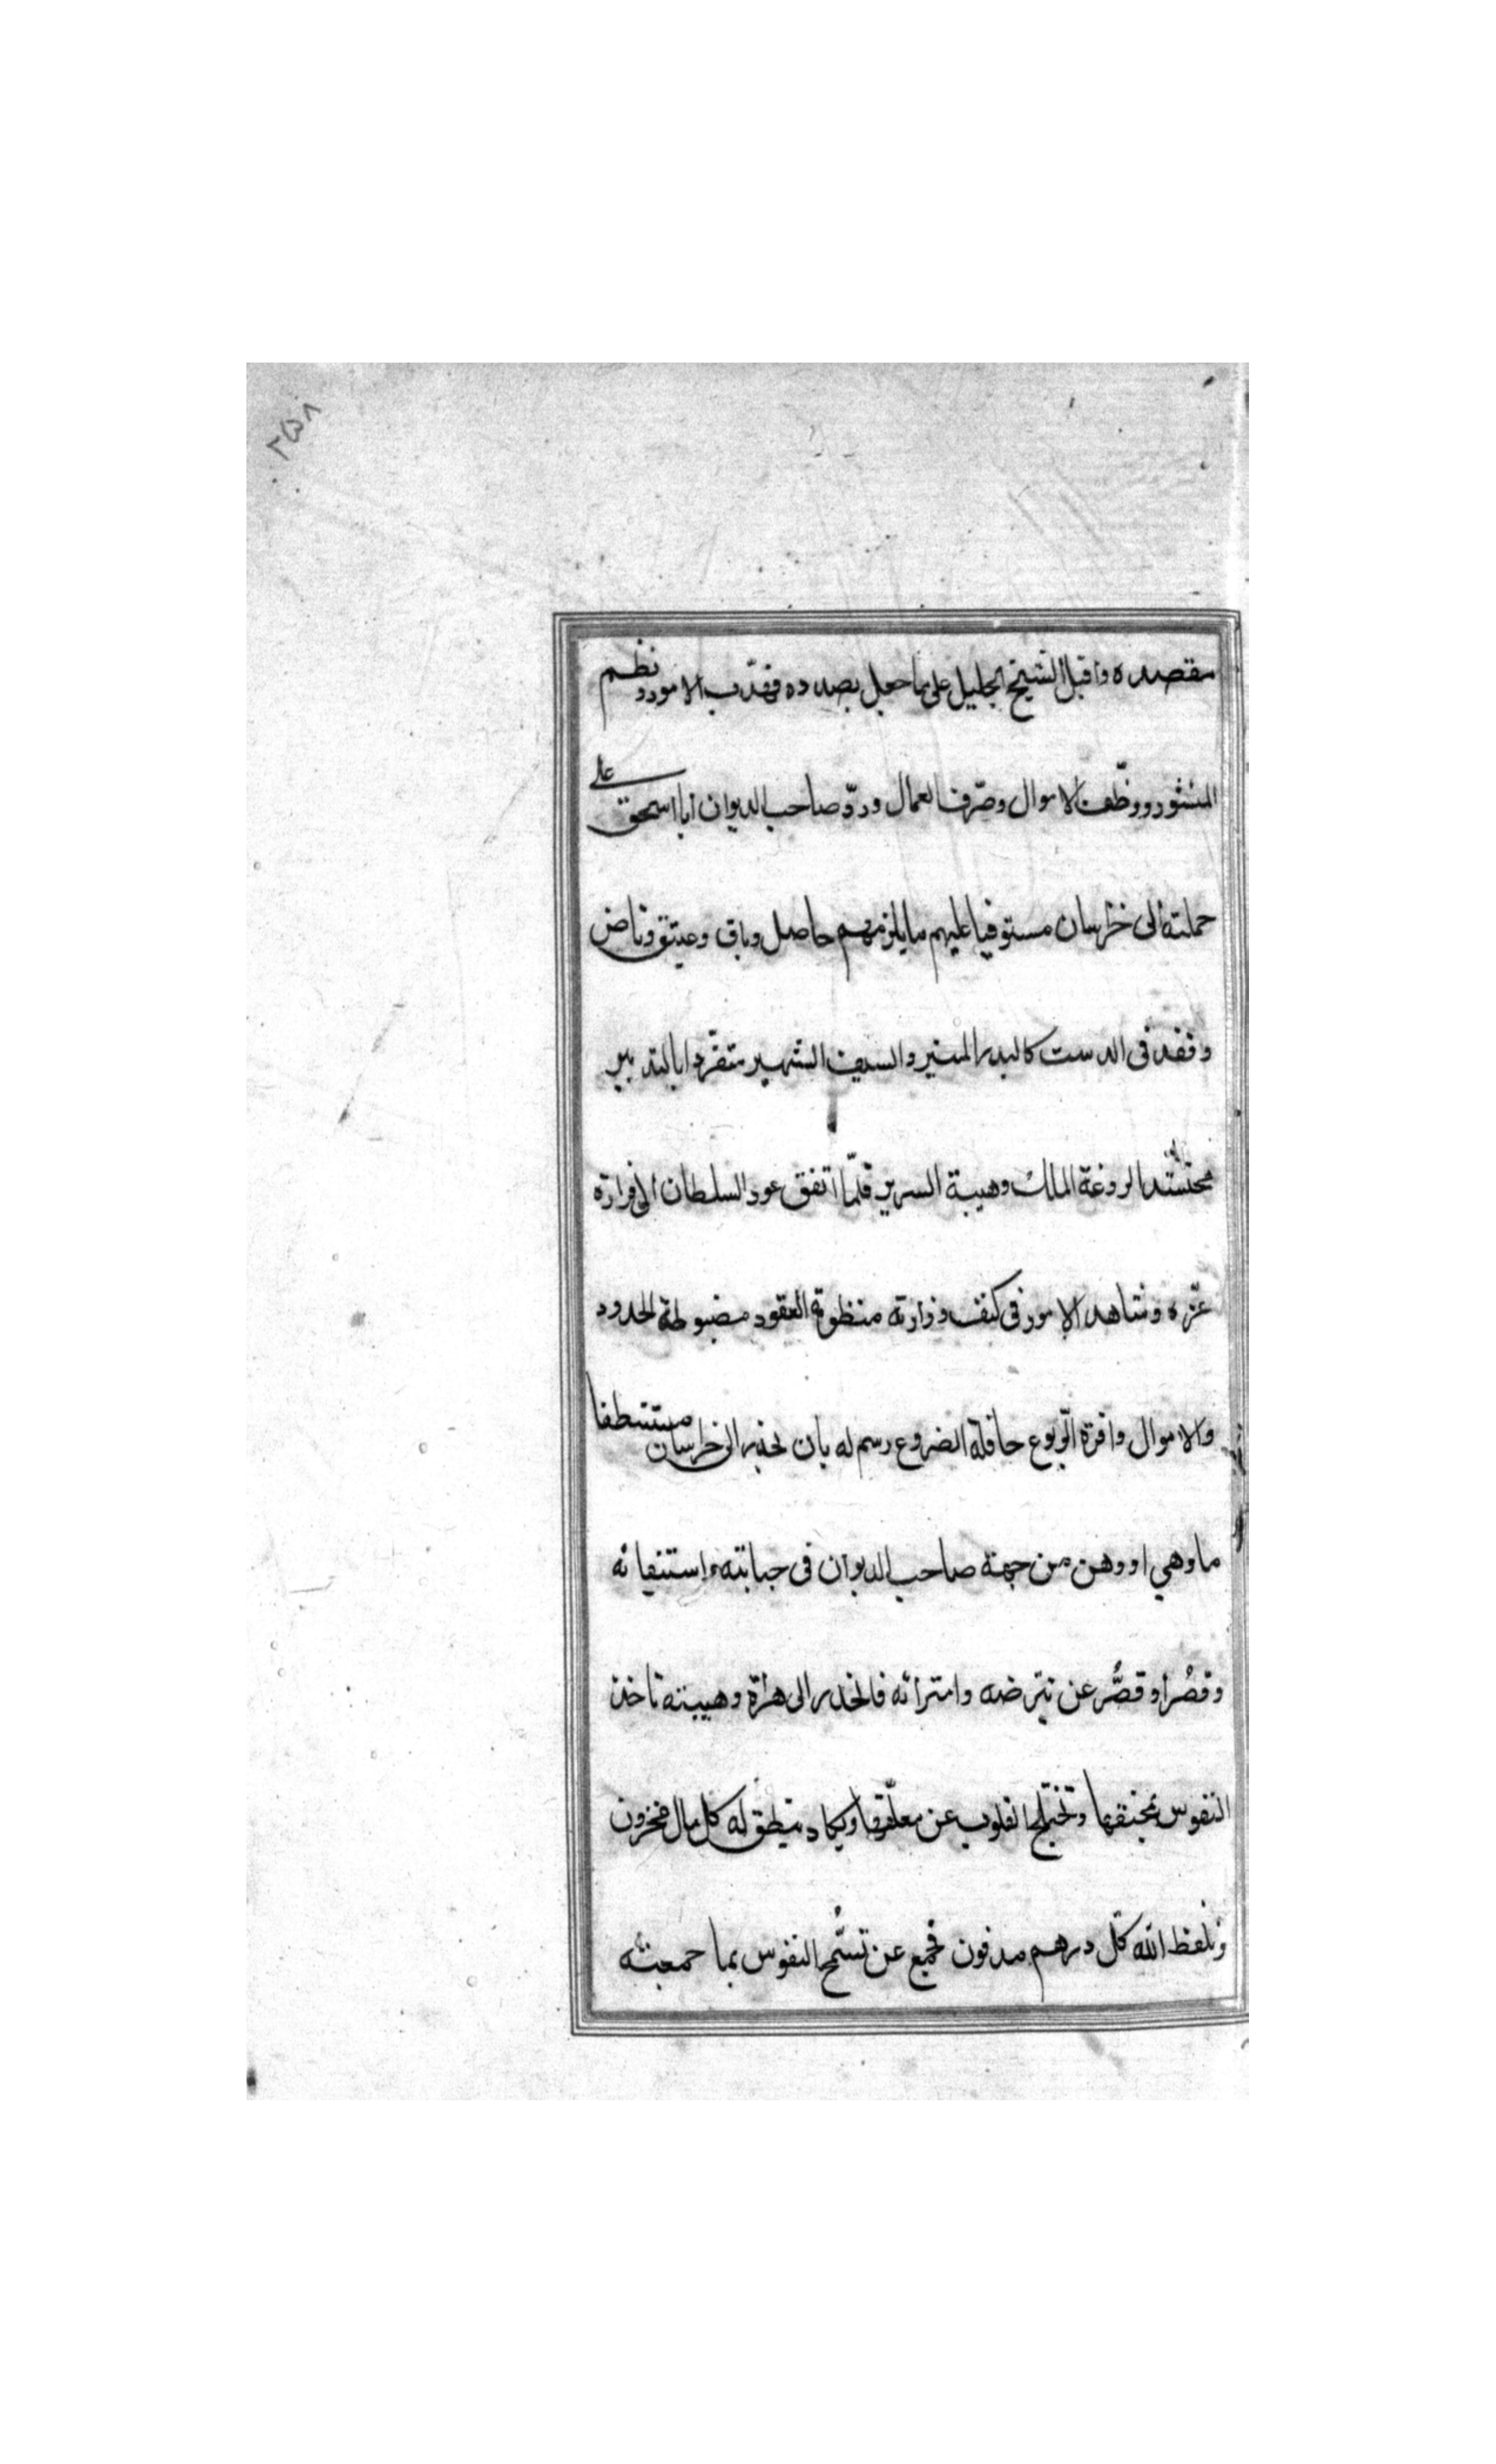 ۲۵۸
مقصده واقبل الشيخ الجليل على ما جعل بصدده فهذب الامور ونظم
المنثور ووظف الاموال وصرف العمال وردّ صاحب الديوان ابا اسحق على
حملته الى خراسان مستوفيا عليهم ما يلزمهم حاصل وباق وعتيق وناض
وقعد فى الدست كالبدر المنير والسيف الشهير متفرّدا بالتدبير
الروعة الملك وهيبة السرير فلمّا اتفق عود السلطان الى قرارة
عزه وشاهد الامور فى كنف وزارته منظومة العقود مضبوطة الحدود
والاموال وافرة الربوع حافلة الضروع رسم له بان ينحدر الى خراسان مستنطفا
ما وهي او وهن من جهة صاحب الديوان فى جبايته واستنفائه
وقصُر او قصُّر عن تبرضه وامترائه فانحدر الى هراة وهيبته تاخذ
النفوس بمخنقها وتختلج القلوب عن معلّقها ويكاد ينطق له كل مال مخزون
وتلفظ الله كل درهم مدفون فجمع عن تسمّح النفوس بما جمعته